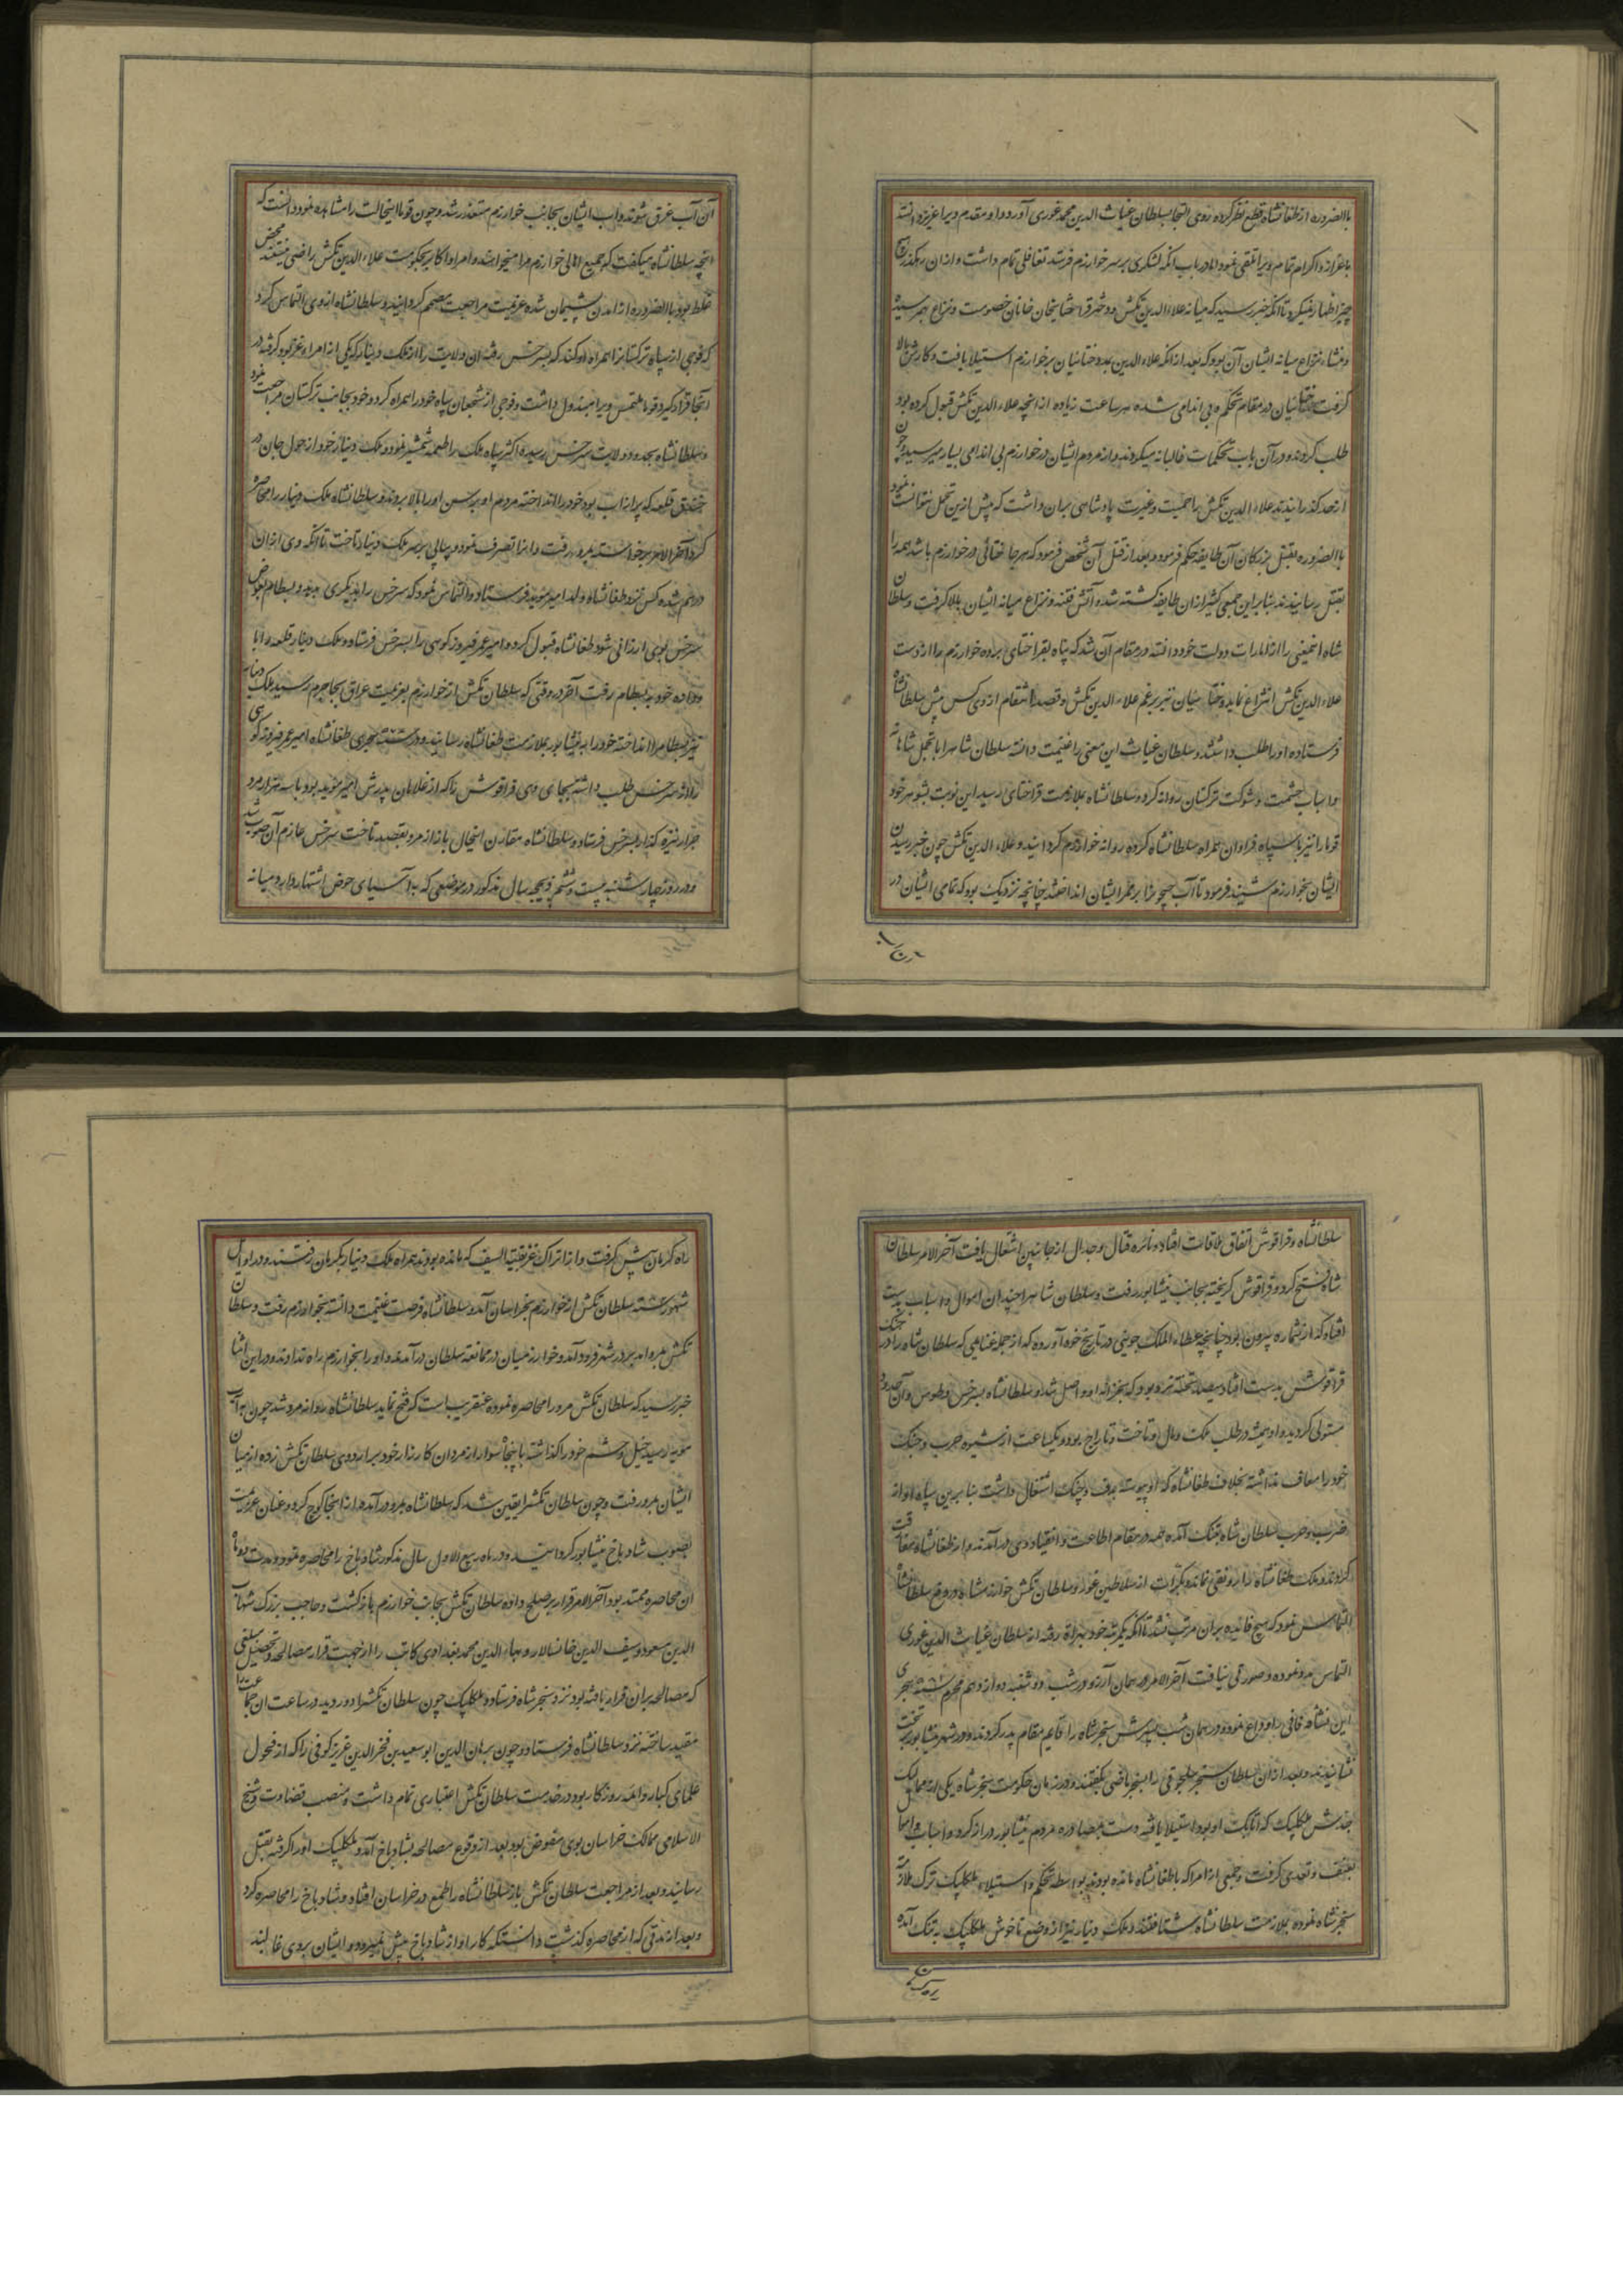 باالضروره از طغانشاه قطع نظر کرده روی التجا بسلطان غیاث الدین محمد غوری آورد و او مقدم ویرا عزیز دانسته
باعزاز و اکرام تمام ویرا تلقی نمود اما در باب انکه لشکری بر سر خوارزم فرستد تغافلی تمام داشت و ازان رهکذر هیچ
چیز اظهار نمیکرد تا آنکه خبر رسید که میانه علاء الدین تکش و دختر قراختا یعنی خان خانان خصومت و نزاع بهم رسیده
و منشاء نزاع میانه ایشان آن بود که بعد از انکه علاء الدین بمدد ختائیان بر خوارزم استیلا یافت و کارش بالا
گرفت ختائیان در مقام تحکم و بی اندامی شده هر ساعت زیاده از انچه علاء الدین تکش قبول کرده بود
طلب کردند و در آن باب تحکمات غالبانه میکردند و از مردم ایشان در خوارزم بی اندامی بسیار میرسید و چون
از حد کذرانیدند علاء الدین تکش را حمیت و غیرت پادشاهی بران داشت که پیش ازین تحمل نتوانست نمود
باالضروره بقتل بزرکان آن طایفه حکم فرمود و بعد از قتل آن شخص فرمود که هر جا ختائی در خوارزم باشد همه را
بقتل رسانیدند بنابراین جمعی کثیر ازان طایفه کشته شد و آتش فتنه و نزاع میانه ایشان بالا کرفت و سلطان
شاه اینمعنی را از امارات دولت خود دانسته در مقام آن شد که پناه بقراختای برده خوارزم را از دست
علاء الدین تکش انتزاع نماید و ختائیان نیز بر رغم علاء الدین تکش و قصد انتقام از وی کس پیش سلطانشاه
فرستاده او را طلب داشتند و سلطان غیاث این معنی را غنیمت دانسته سلطان شاهرا با تجمل شاهانه
و اسباب حشمت و شوکت ترکستان روانه کرد و سلطانشاه بملازمت قراختای رسید این نوبت شوهر خود
قوما را نیز با سپاه فراوان همراه سلطانشاه کرده روانه خوارزم کردانید و علاء الدین تکش چون خبر رسیدن
ایشان بخوارزم شنید فرمود تا آب جیحونرا بر ممر ایشان انداختند چنانچه نزدیک بود که تمامی ایشان در
آن آب غرق شوند و اب ایشان بجانب خوارزم متعذر شد و چون قوما اینحالت را مشاهده نمود دانست که
انچه سلطانشاه میکفت که جمیع اهالی خوارزم مرا میخواهند و امرا و اکابر بحکومت علاء الدین تکش راضی نیستند محض
غلط بود باالضروره از امدن پشیمان شده عزیمت مراجعت مصمم کردانید و سلطانشاه از وی التماس کرد
که فوجی از سپاه ترکستانرا همراه او کند که بسرخس رفته ان ولایت را از ملک دینار که یکی از امراء غز بود کرفته در
آنجا قرار گیرد قوما ملتمس ویرا مبذول داشت و فوجی از شجعان سپاه خود را همراه کرد و خود بجانب ترکستان مراجعت نمود
و سلطانشاه بحدود ولایت سرخس رسیده اکثر سپاه ملک را طعمه شمشیر نمود و ملک دینار خود از هول جان در
خندق قلعه که پر از اب بود خود را انداخته مردم او برسن اورا بالا بردند و سلطانشاه ملک دینار را محاصره
کرد آخر الامر برخواسته بمرو رفت و انرا تصرف نمود و پیاپی بر سر ملک دینار تاخت تا آنکه وی ازان
درهم شده کس نزد طغانشاه ولد امیر موید فرستاد و التماس نمود که سرخس را بدیکری بدهد و بسطام بعوض
سرخس بوی ارزانی شود طغانشاه قبول کرد و امیر عمر فیروزکوهی را بسرخس فرستاد و ملک دینار قلعه را باو
داده خود به بسطام رفت آخر در وقتی که سلطان تکش از خوارزم بعزیمت عراق بجاجرم رسید ملک دینار
نیز بسطام را انداخته خود را به نیشابور بملازمت طغانشاه رسانید و در سنه هجری طغانشاه امیر عمر فیروزکوهی
را از سرخس طلب داشته بجای وی قراقوش را که از غلامان پدرش امیر موید بود با سه هزار مرد
جرار نیزه کذار بسرخس فرستاد و سلطانشاه مقارن اینحال باز از مرو بقصد تاخت سرخس عازم آن صوب شد
و در روز چهارشنبه بیست و ششم ذیحجه سال مذکور در موضعی که به آسیای حوض اشتهار دارد میانه
سلطانشاه و قراقوش اتفاق ملاقات افتاد و نائره قتال و جدال از جانبین اشتعال یافت آخر الامر سلطان
شاه فتح کرد و قراقوش کریخته بجانب نیشابور رفت و سلطان شاهرا چندان اموال و اسباب بدست
افتاد که از شماره بیرون بود چنانچه عطاء الملک جوینی در تاریخ خود آورده که از جمله غنایمی که سلطان شاه را در جنک
قراقوش بدست افتاد سیصد تخته نرد بود که بخزانه او واصل شد و سلطانشاه بسرخس و طوس و آن حدود
مستولی کردید و او همیشه در طلب ملک و مال و تاخت و تاراج بود و یکساعت از شیوه حرب و جنک
خود را معاف نداشته بخلاف طغانشاه که او پیوسته بدف و چنک اشتغال داشت بنا برین سپاه او از
ضرب و حرب سلطان شاه بتنک آمده همه در مقام اطاعت و انقیاد وی درآمدند و از طغانشاه مفارقت
کردند و ملک طغانشاه را رونقی نماند و بکرات از سلاطین غور و سلطان تکش خوارزمشاه در دفع سلطانشاه
التماس نمود که هیچ فایده بران مرتب نشد تا آنکه یکمرتبه خود بهراة رفته از سلطان غیاث الدین غوری
التماس مدد نموده و صورتی نیافت آخر الامر در همان آرزو در شب دوشنبه دوازدهم محرم سنه هجری
این نشاه فانی را وداع نمود و در همان شب پسرش سنجر شاه را قایم مقام پدر کردند و در شهر نیشابور بتخت
نشانیدند و بعد از آن سلطان سنجر سلجوقی را سنجر ماضی بکفتند و در زمان حکومت سنجر شاه یکی از ممالیک
جدش منکلبیک که اتابک او بود استیلا یافته دست بمصادره مردم نیشابور دراز کرد و اسباب و اموال
بعنف و تعدی کرفت و جمعی از امرا که با طغانشاه مانده بودند بواسطه تحکم و استیلاء منکلبیک ترک ملازمت
سنجر شاه نموده بملازمت سلطانشاه شتافتند و ملک دینار نیز از وضع ناخوش منکلبیک به تنک آمده
راه کرمان پیش کرفت و از اتراک غز بقیة السیف که مانده بودند همراه ملک دینار بکرمان رفتند و در اوایل
شهور سنه سلطان تکش از خوارزم بخراسان آمد و سلطانشاه فرصت غنیمت دانسته بخوارزم رفت و سلطان
تکش بمرو آمد بر در شهر فرود آمد و خوارزمیان در ممانعه سلطان درآمدند و او را بخوارزم راه ندادند و در این اثنا
خبر رسید که سلطان تکش مرو را محاصره نموده عنقریب است که فتح نماید سلطانشاه روانه مرو شد چون به آب
مویه رسید خیل و حشم خود را کذاشته با پنجاه سوار از مردان کارزار خود بر اردوی سلطان تکش زده از میان
ایشان بمرو رفت و چون سلطان تکش را یقین شد که سلطانشاه بمرو درآمده از انجا کوچ کرد و عنان عزیمت
بصوب شادیاخ نیشابور کردانید و در ماه ربیع الاول سال مذکور شادیاخ را محاصره نمود و مدت دو ماه
ان محاصره ممتد بود آخر الامر قرار بر صلح داده سلطان تکش بجانب خوارزم بازکشت و حاجب بزرک شهاب
الدین مسعود و سیف الدین خانسالار و بهاء الدین محمد بغدادی کاتب را از جهت قرار مصالحه و تحصیل مبلغی
که مصالحه بران قرار یافته بود نزد سنجر شاه فرستاد و منکلبیک چون سلطان تکش را دور دید در ساعت ان جماعت را
مقید ساخته نزد سلطانشاه فرستاد و چون برهان الدین ابو سعید بن فخر الدین عزیز کوفی را که از فحول
علمای کبار و ائمه روزکار بود در خدمت سلطان تکش اعتباری تمام داشت و منصب قضاوت و شیخ
الاسلامی ممالک خراسان بوی مفوض بود بعد از وقوع مصالحه بشادیاخ آمد و منکلبیک اورا کرفته بقتل
رسانید و بعد از مراجعت سلطان تکش باز سلطانشاه را طمع در خراسان افتاد و شادیاخ را محاصره کرد
و بعد از مدتی که از محاصره کذشت دانست که کار او از شادیاخ پیش نمیرود و ایشان بروی غالبند